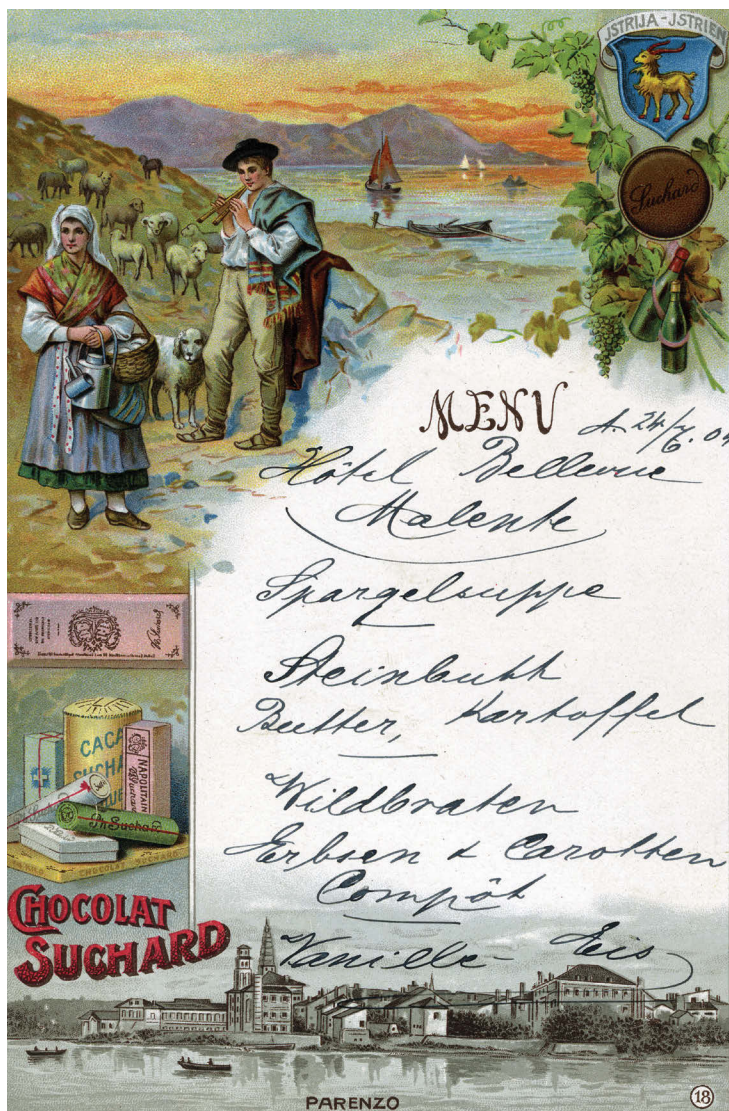 JSTRIJA-JSTRIEN
Suchard
MENU
d. 24/6. 04
Hôtel Bellevue
Malente
Spargelsuppe
Steinbutt
Butter, Kartoffel
Wildbraten
Erbsen & Carotten
Compôt
Vanille-Eis
CACA
SUCHA
NAPOLITAIN
Ph Suchard
CHOCOLAT SUCHARD
CHOCOLAT
SUCHARD
PARENZO
18